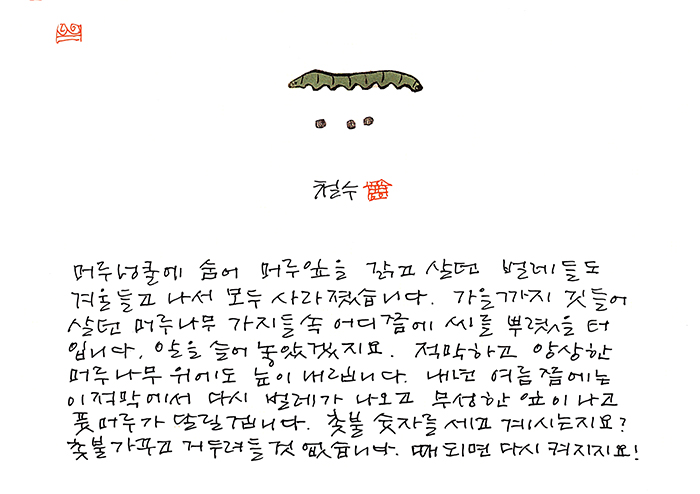 철수
머루넝쿨에 숨어 머루잎을 갉고 살던 벌레들도
겨울들고 나서 모두 사라졌습니다. 가을까지 깃들어
살던 머루나무 가지들 속 어디쯤에 씨를 뿌렸을 터
입니다. 알을 슬어 놓았겠지요. 적막하고 앙상한
머루나무 위에도 눈이 내립니다. 내년 여름쯤에는
이 적막에서 다시 벌레가 나오고 무성한 잎이 나고
풋머루가 달릴겁니다. 촛불 숫자를 세고 계시는지요?
촛불 가꾸고 거두려들 것 없습니다. 때 되면 다시 켜지지요!